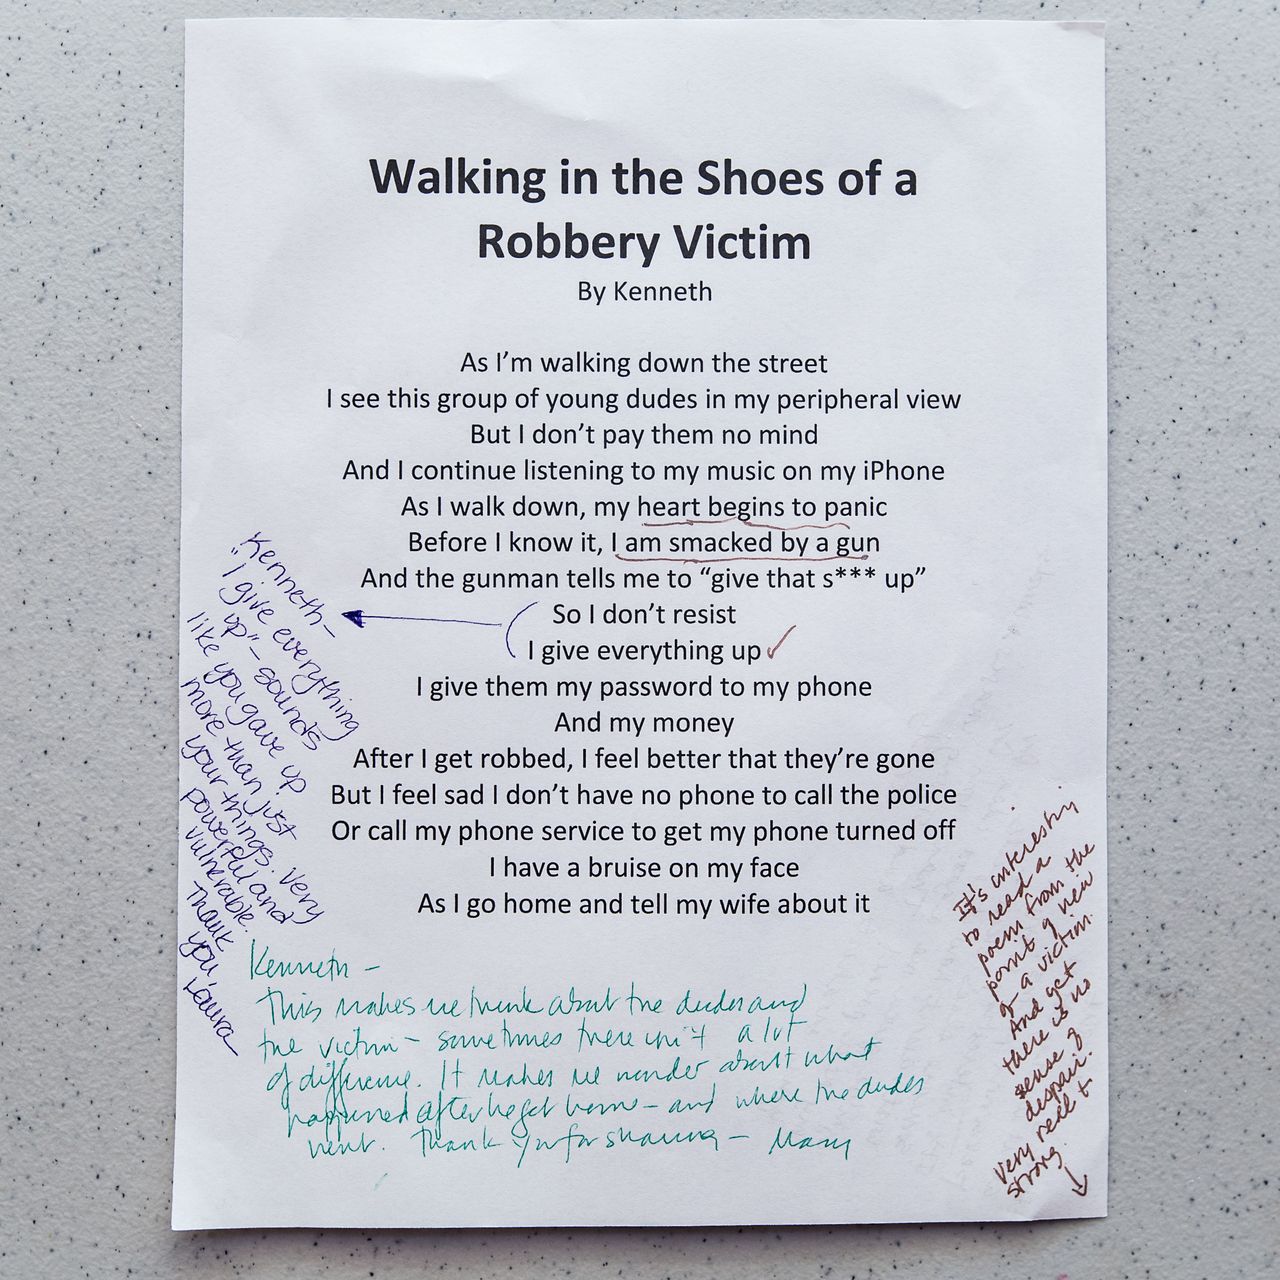 Walking in the Shoes of a
Robbery Victim
By Kenneth
As I'm walking down the street
I see this group of young dudes in my peripheral view
But I don't pay them no mind
And I continue listening to my music on my iPhone
As I walk down, my heart begins to panic
Before I know it, I am smacked by a gun
And the gunman tells me to “give that s*** up”
So I don't resist
I give everything up
I give them my password to my phone
And my money
After I get robbed, I feel better that they're gone
But I feel sad I don't have no phone to call the police
Or call my phone service to get my phone turned off
I have a bruise on my face
As I go home and tell my wife about it
Kenneth-
"I give everything
up" - sounds
like you gave up
more than just
your things. Very
powerful and
vulnerable.
Thank
you, Laura
Kenneth -
This makes me think about the dudes and
the victim - sometimes there isn't a lot
of difference. It makes me wonder about what
happened after he got home - and where the dudes
went. Thank you for sharing - Mary
It's interesting
to read a
poem from the
point of view
of a victim.
And yet
there is no
sense of
despair.
Very real +
strong.